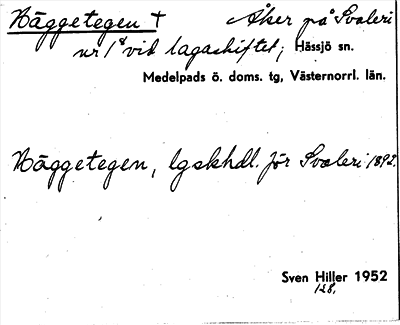 Häggetegen † Åker på Svaleri
nr 1⁸ vid lagaskiftet; Hässjö sn.
Medelpads ö. doms. tg, Västernorrl. län.
Häggetegen, lgskhdl. för Svaleri 1892.
Sven Hiller 1952
128.